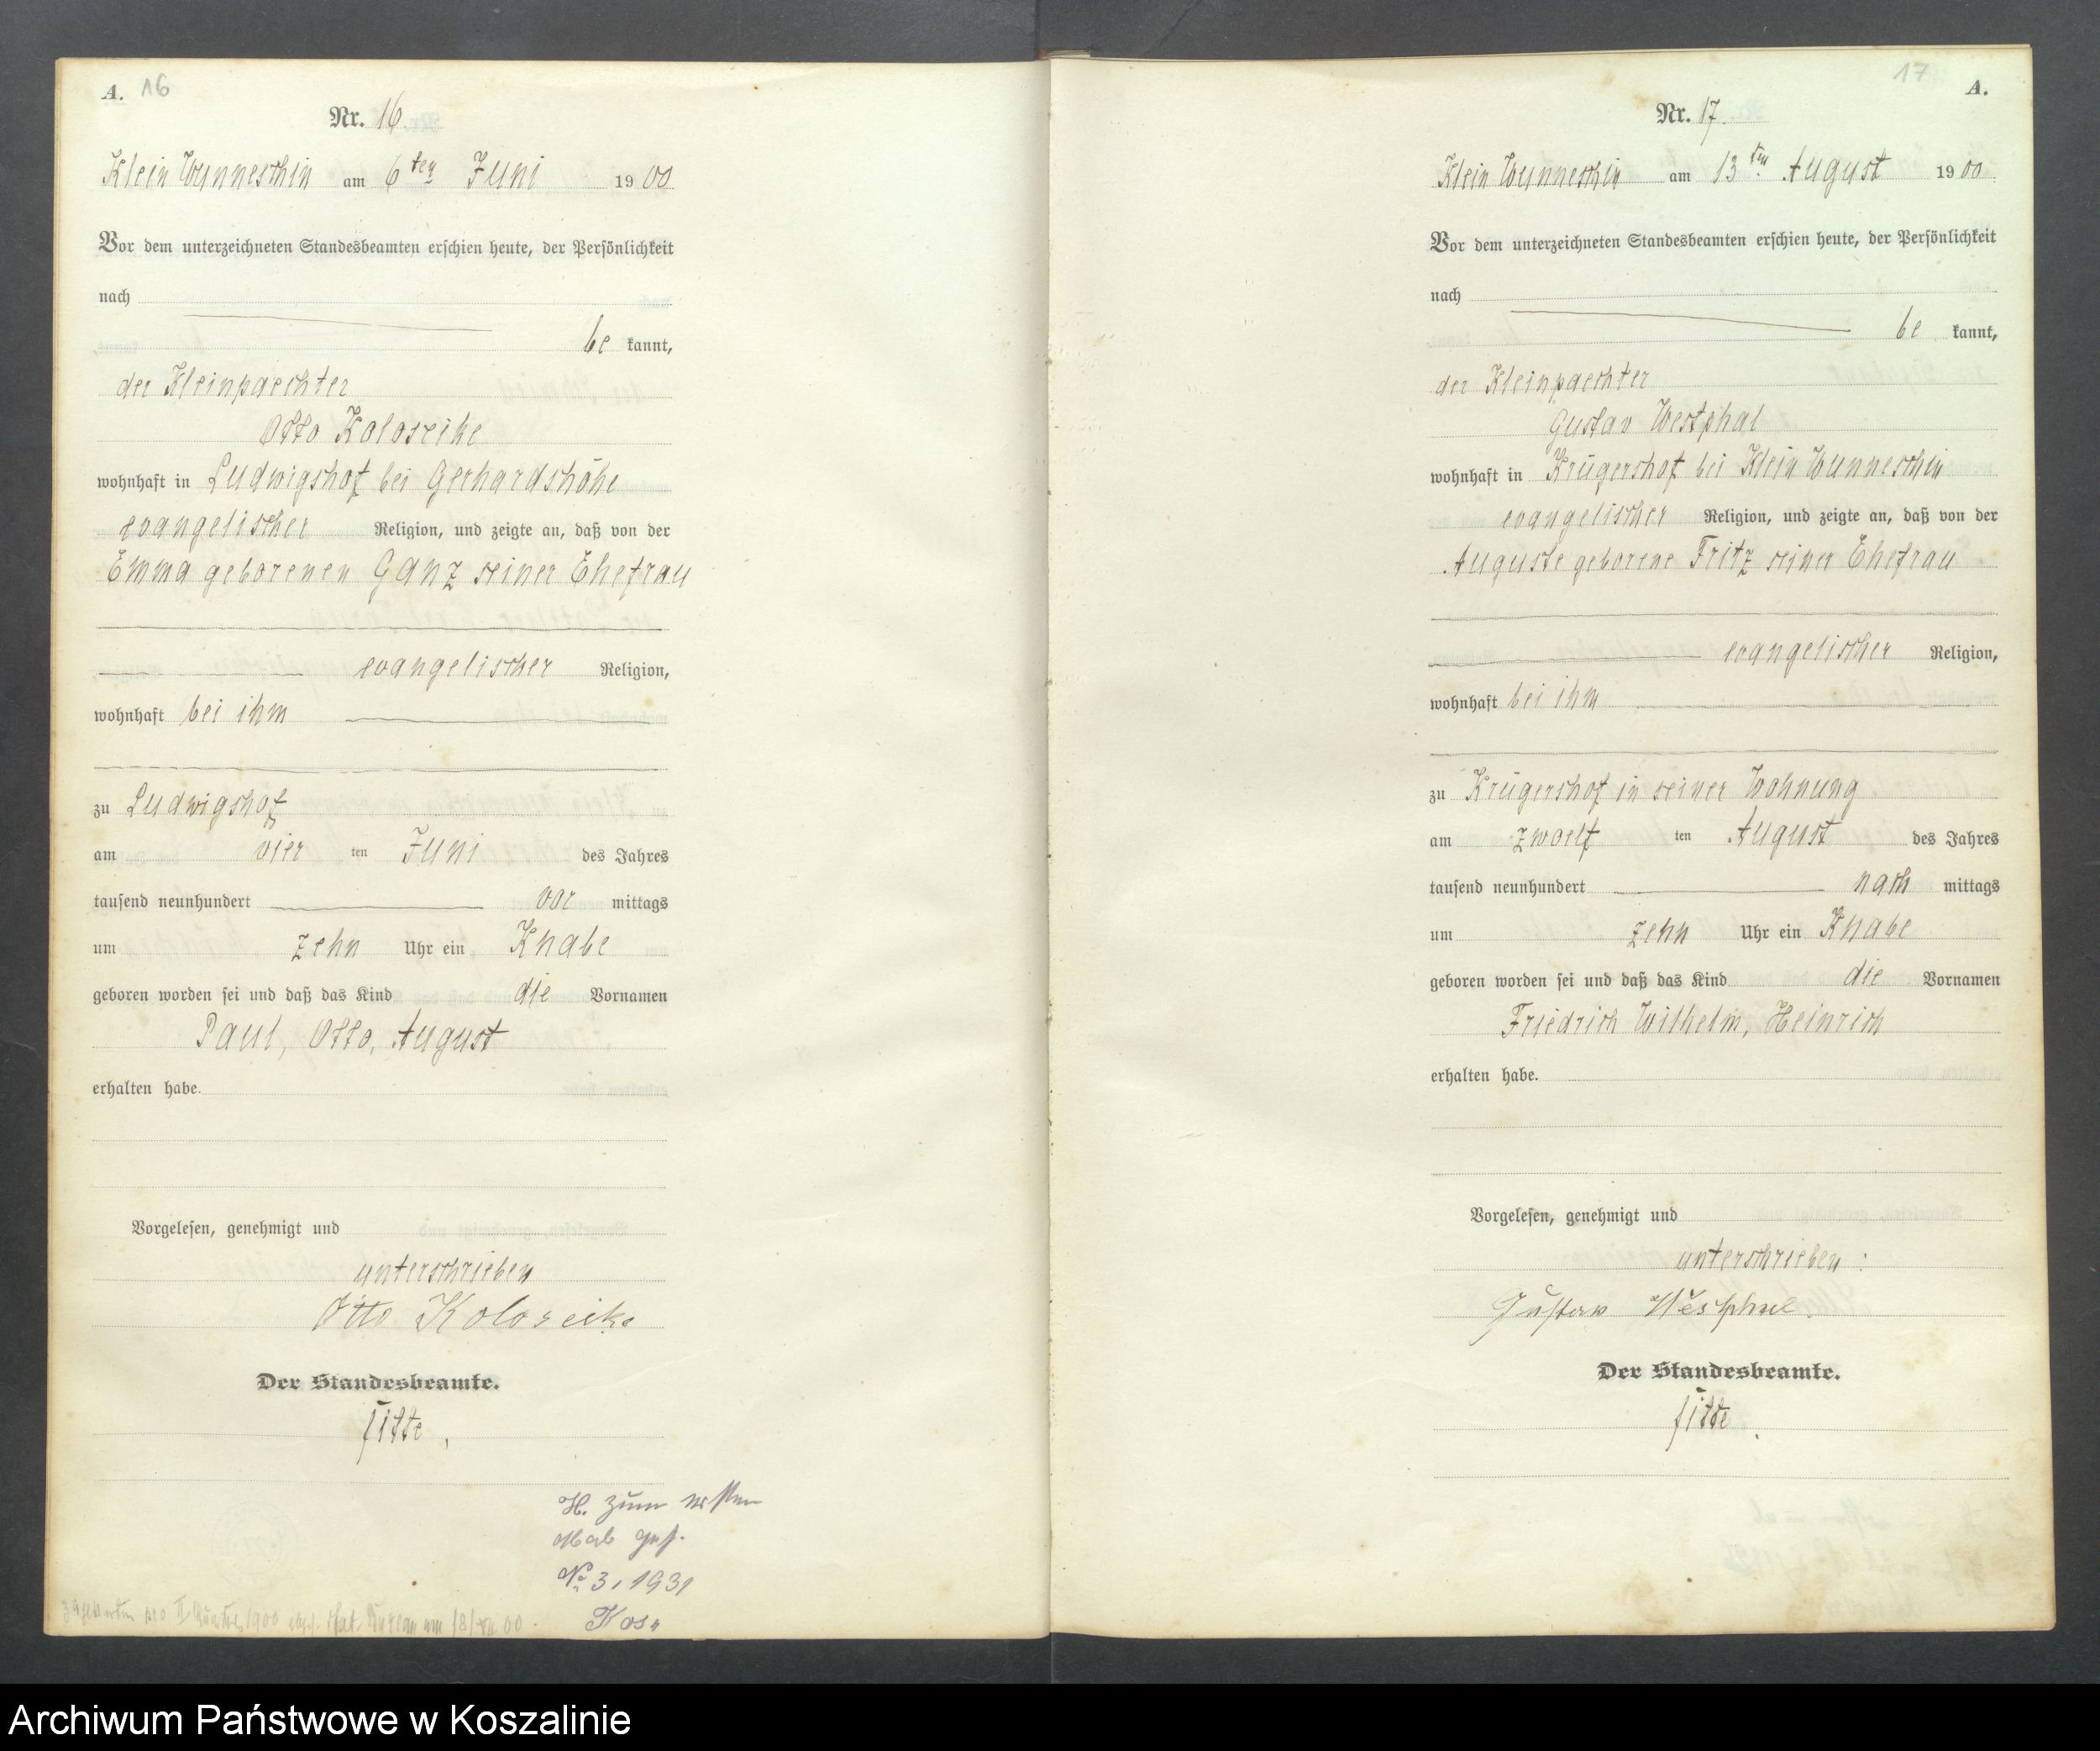 A. 16
Nr. 16
Klein Wunneschin am 6ten Juni 1900
Vor dem unterzeichneten Standesbeamten erschien heute, der Persönlichkeit
nach
be kannt,
der Kleinpaechter
Otto Koloseike
wohnhaft in Ludwigshof bei Gerhardshöhe
evangelischer Religion, und zeigte an, daß von der
Emma geborenen Ganz seiner Ehefrau
evangelischer Religion,
wohnhaft bei ihm
zu Ludwigshof
am vier ten Juni des Jahres
tausend neunhundert vor mittags
um zehn Uhr ein Knabe
geboren worden sei und daß das Kind die Vornamen
Paul, Otto, August
erhalten habe.
Vorgelesen, genehmigt und
unterschrieben
Otto Koloseike
Der Standesbeamte.
Titte
H. zum ersten
Mal
No 3, 1931
17 A.
Nr. 17
Klein Wunneschin am 13ten August 1900
Vor dem unterzeichneten Standesbeamten erschien heute, der Persönlichkeit
nach
be kannt,
der Kleinpaechter
Gustav Westphal
wohnhaft in Krügershof bei Klein Wunneschin
evangelischer Religion, und zeigte an, daß von der
Auguste geborene Fritz seiner Ehefrau
evangelischer Religion,
wohnhaft bei ihm
zu Krügershof in seiner Wohnung
am zwoelf ten August des Jahres
tausend neunhundert nach mittags
um zehn Uhr ein Knabe
geboren worden sei und daß das Kind die Vornamen
Friedrich Wilhelm, Heinrich
erhalten habe.
Vorgelesen, genehmigt und
unterschrieben:
Gustav Westphal
Der Standesbeamte.
Titte
Archiwum Państwowe w Koszalinie